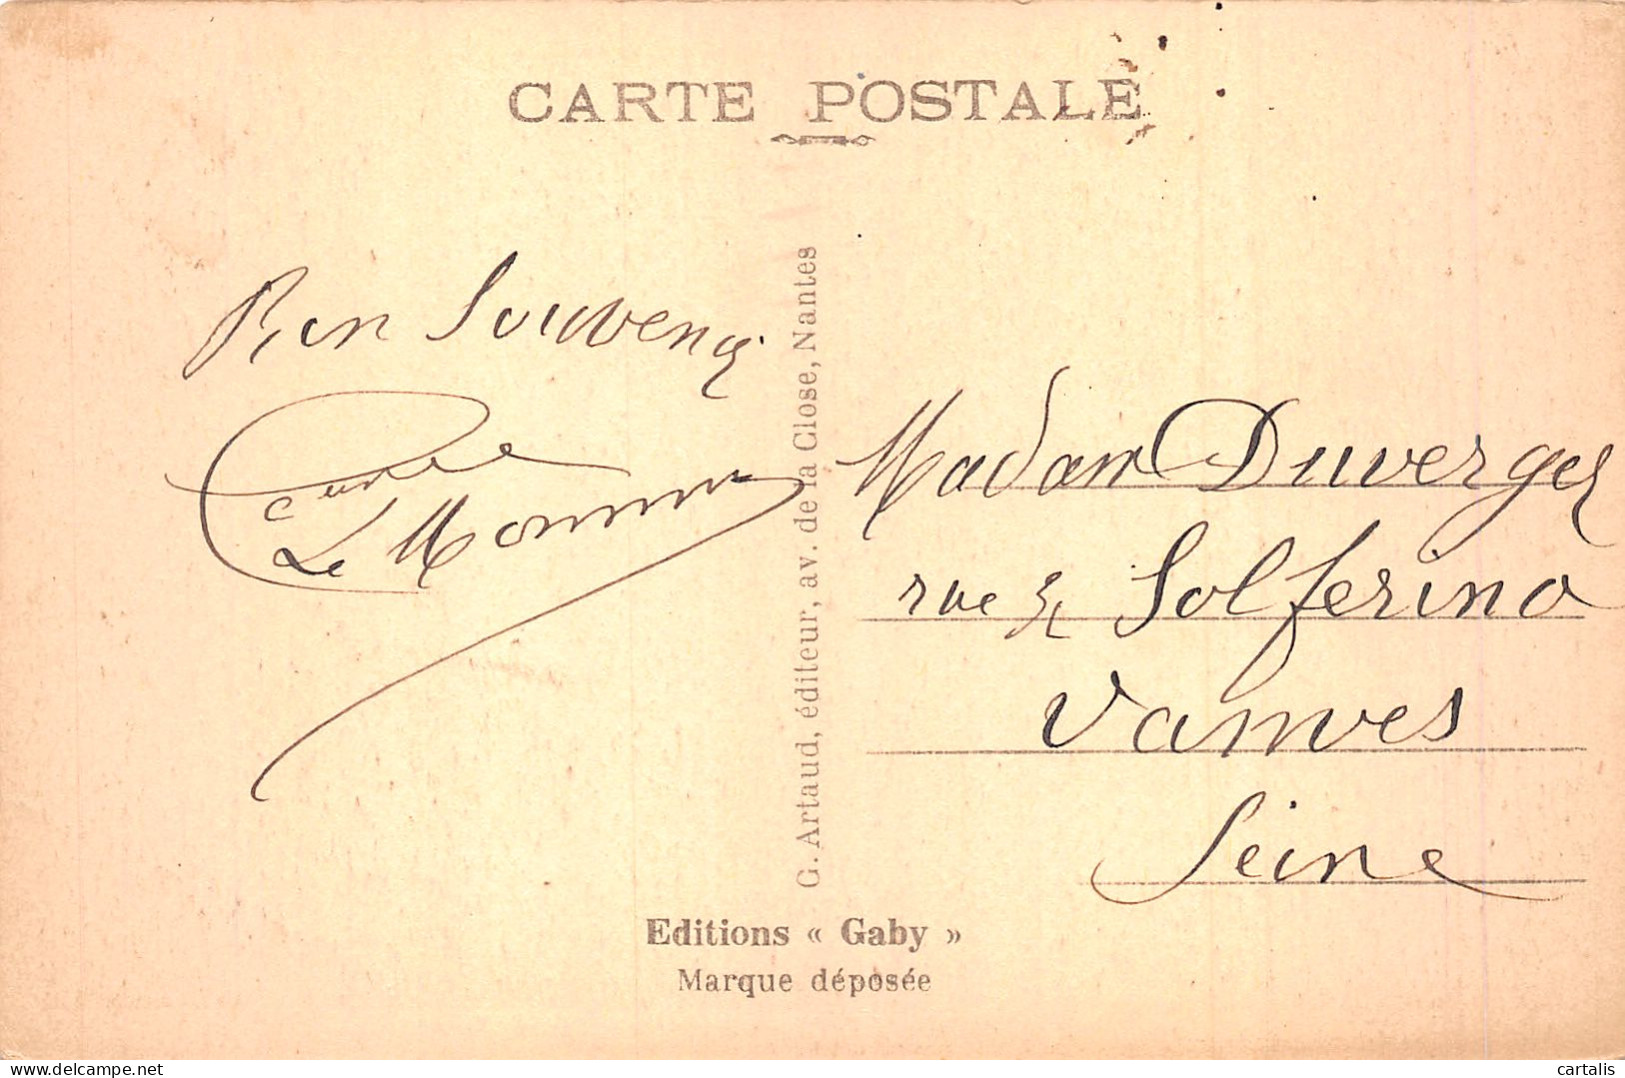 CARTE POSTALE
Bon Souvenir
Le
G. Artaud, éditeur, av. de la Close, Nantes
Madam Duverger
rue Solferino
Vanves
Seine
Editions « Gaby »
Marque déposée
delcampe.net
cartalis